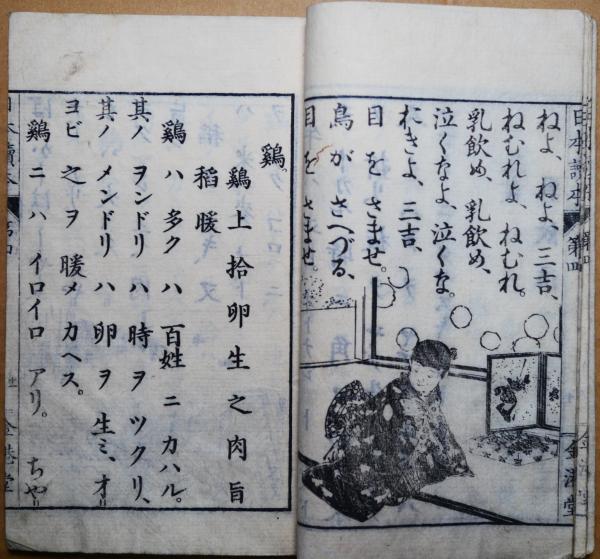 ねよ、ねよ、三吉、
ねむれよ、ねむれ。
乳飲め、乳飲め、
泣くなよ、泣くな。
おきよ、三吉、
目をさませ。
鳥がさへづる、
目をさませ。
日本讀本 第四
金港堂
鷄。
鷄 上 拾 卵 生 之 肉 旨
稻 暖
鷄ハ多クハ百姓ニカハル。
其ノヲンドリハ時ヲツクリ、
其ノメンドリハ卵ヲ生ミ、オリ
ヨビ之ヲ暖メカヘス。
鷄ニハイロイロアリ。ちやり
日本讀本
金港堂